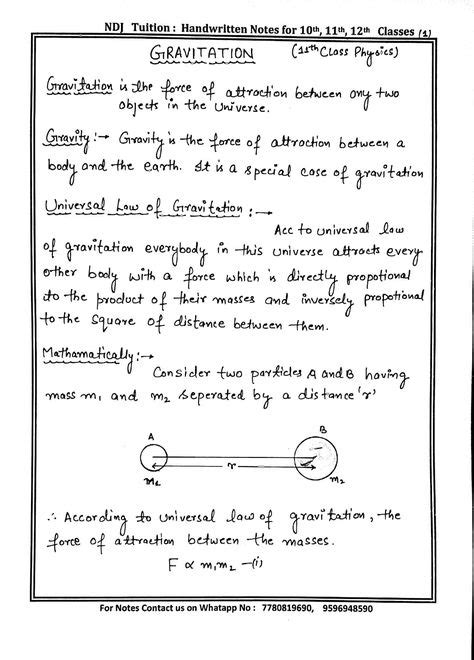 NDJ Tuition : Handwritten Notes for 10th, 11th, 12th Classes (1)
GRAVITATION (11th Class Physics)
Gravitation is the force of attraction between any two
objects in the Universe.
Gravity :→ Gravity is the force of attraction between a
body and the earth. It is a special case of gravitation
Universal Law of Gravitation :→
Acc to universal law
of gravitation everybody in this universe attracts every
other body with a force which is directly propotional
to the product of their masses and inversely propotional
to the square of distance between them.
Mathamatically :→
Consider two particles A and B having
mass m1 and m2 seperated by a distance 'r'
A B
r
M1 m2
∴ According to universal law of gravitation, the
force of attraction between the masses.
F ∝ m1m2 —(i)
For Notes Contact us on Whatapp No : 7780819690, 9596948590